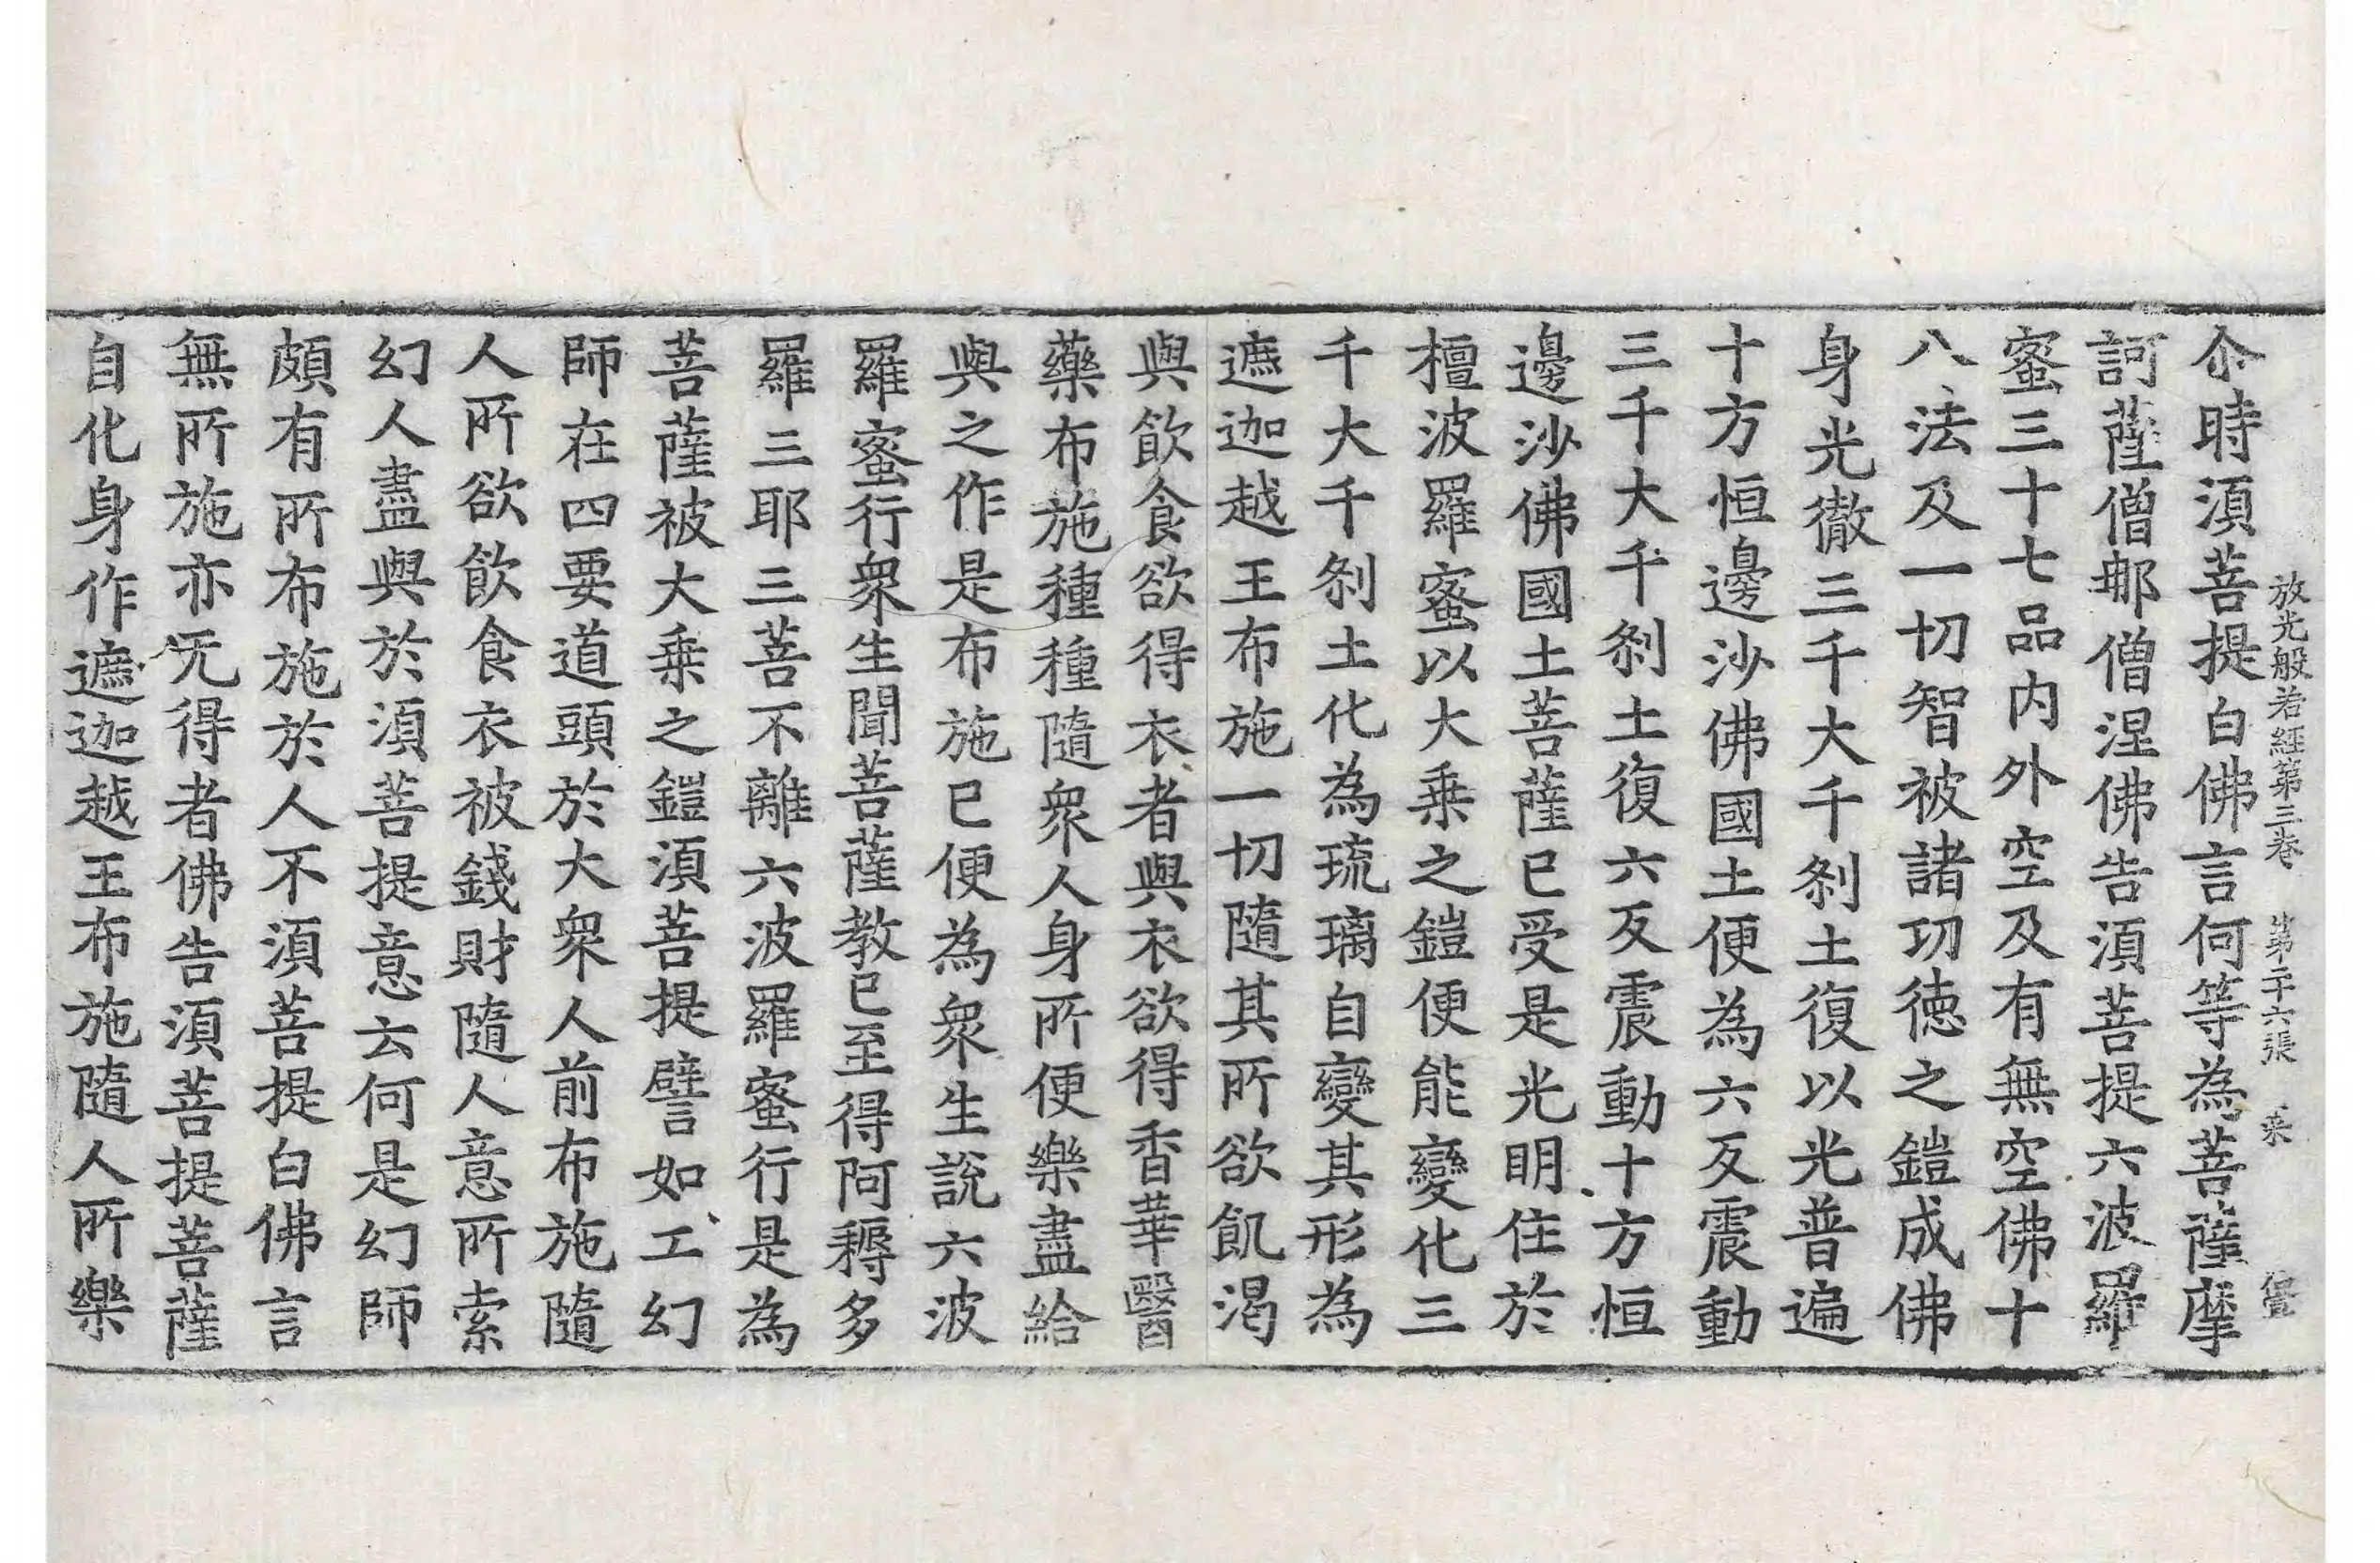 放光般若經第三卷 第二十六張 菜
尒時須菩提白佛言何等為菩薩摩
訶薩僧那僧涅佛告須菩提六波羅
蜜三十七品內外空及有無空佛十
八法及一切智被諸功德之鎧成佛
身光徹三千大千剎土復以光普遍
十方恒邊沙佛國土便為六反震動
三千大千剎土復六反震動十方恒
邊沙佛國土菩薩已受是光明住於
檀波羅蜜以大乘之鎧便能變化三
千大千剎土化為琉璃自變其形為
遮迦越王布施一切隨其所欲飢渴
與飲食欲得衣者與衣欲得香華醫
藥布施種種隨衆人身所便樂盡給
與之作是布施已便為衆生說六波
羅蜜行衆生聞菩薩教已至得阿耨多
羅三耶三菩不離六波羅蜜行是為
菩薩被大乘之鎧須菩提譬如工幻
師在四要道頭於大衆人前布施隨
人所欲飲食衣被錢財隨人意所索
幻人盡與於須菩提意云何是幻師
頗有所布施於人不須菩提白佛言
無所施亦无得者佛告須菩提菩薩
自化身作遮迦越王布施隨人所樂